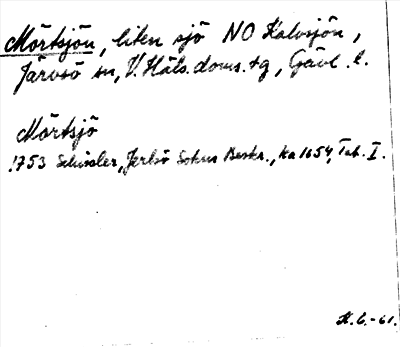 Mörtsjön, liten sjö NO Kalvsjön,
Järvsö sn, V. Häls. doms. tg, Gävl. l.
Mörtsjö
1753 Schissler, Jerlsö Sokns Beskr., Ka 1654, Tab. I.
H.G.-61.